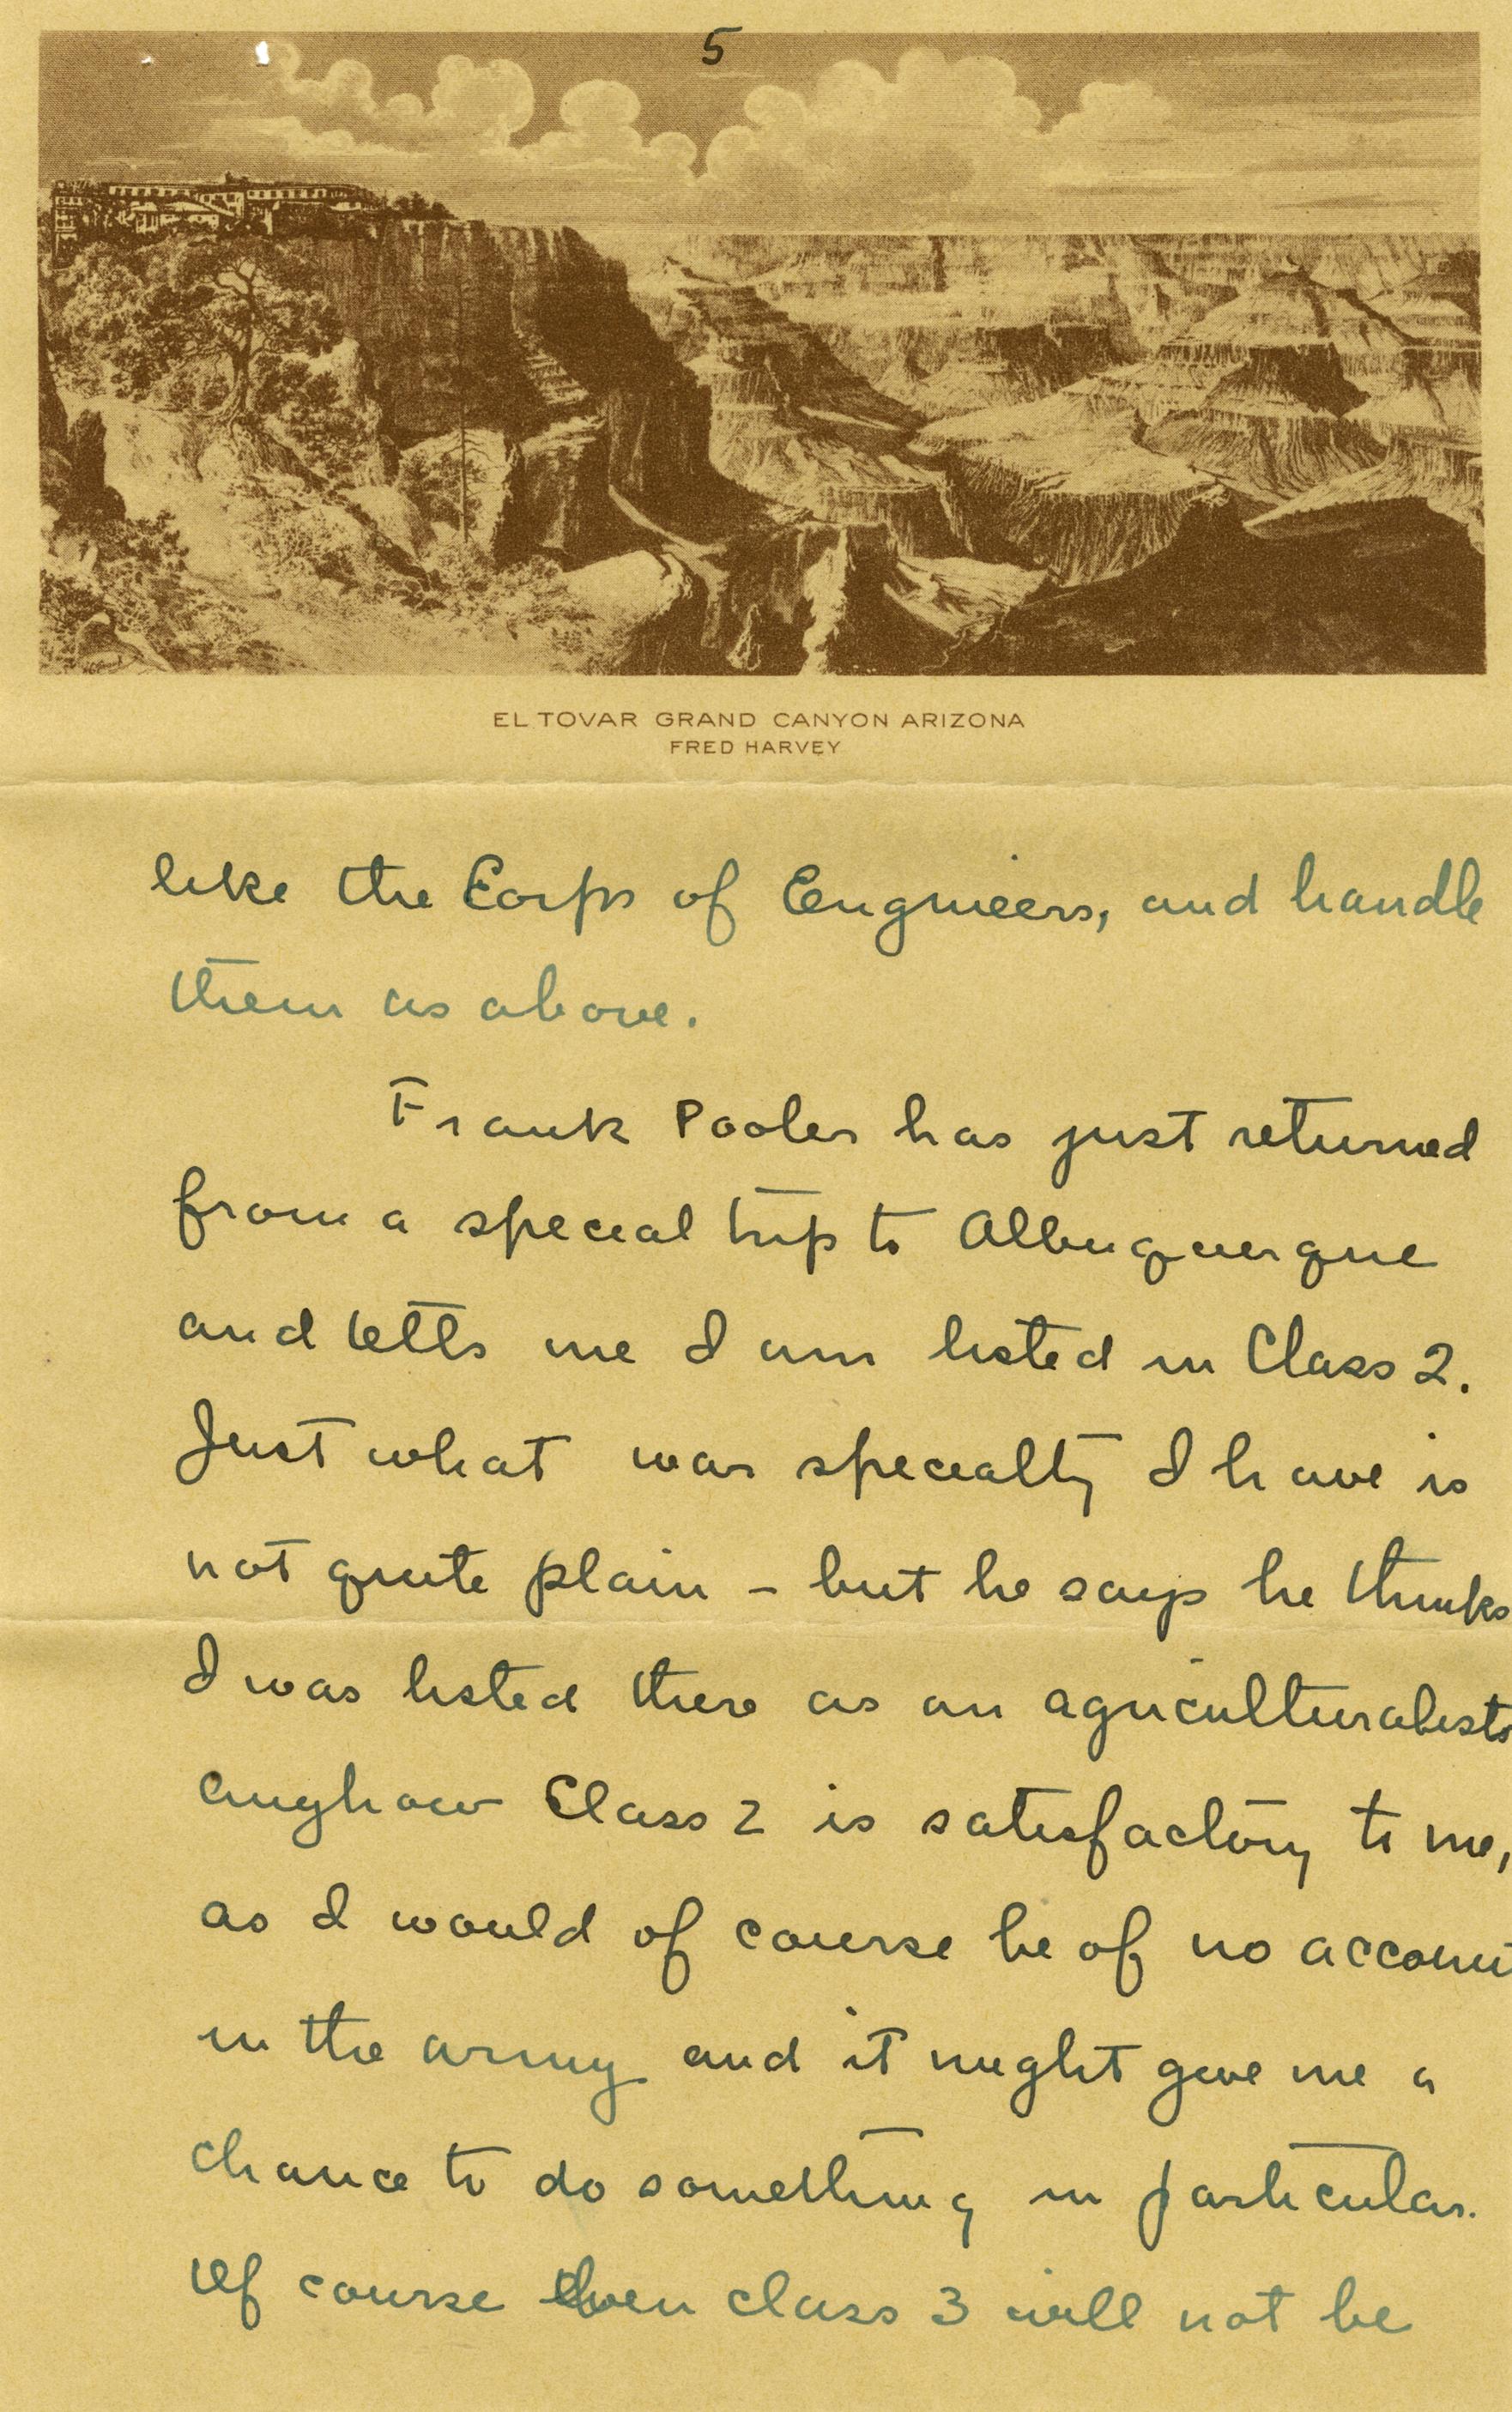 5
EL TOVAR GRAND CANYON ARIZONA
FRED HARVEY
like the Corps of Engineers, and handle
them as above.
Frank Pooler has just returned
from a special trip to Albuquerque
and tells me I am listed in Class 2.
Just what war specialty I have is
not quite plain - but he says he thinks
I was listed there as an agriculturalist
anyhow Class 2 is satisfactory to me,
as I would of course be of no account
in the army and it might give me a
chance to do something in particular.
Of course even class 3 will not be